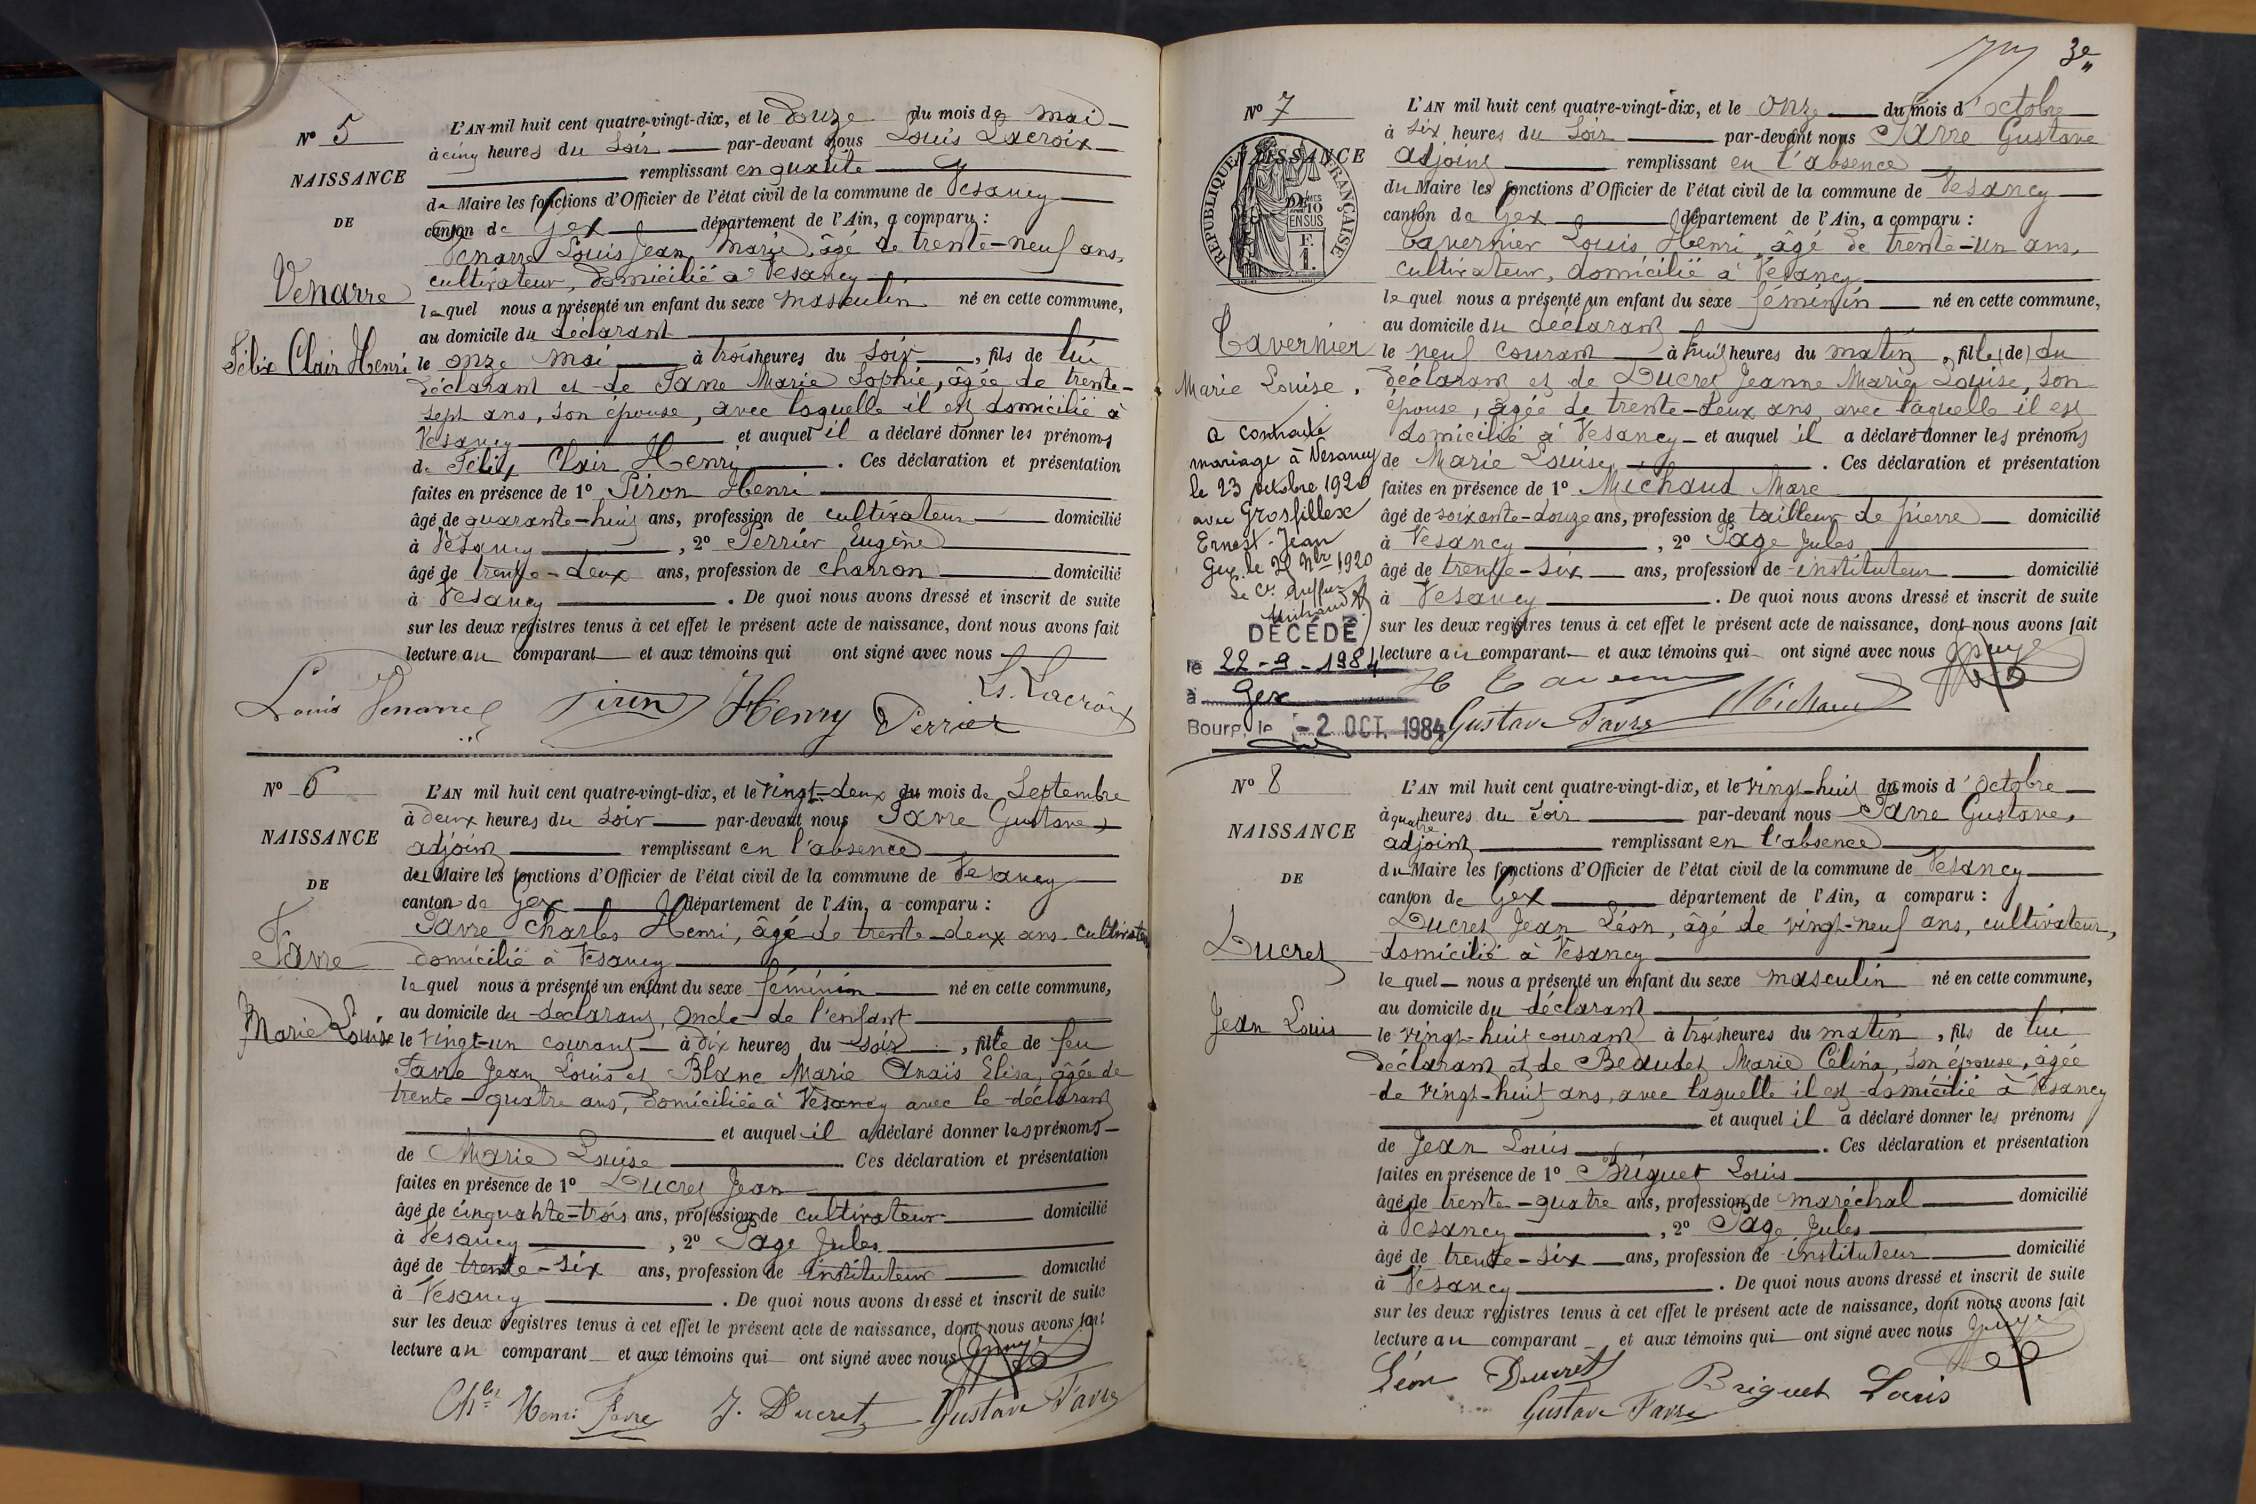 N° 5
NAISSANCE
DE
Venarre
Félix Clair Henri
L'AN mil huit cent quatre-vingt-dix, et le douze du mois de mai
à cinq heures du soir par-devant nous Louis Lacroix
remplissant en qualité
de Maire les fonctions d'Officier de l'état civil de la commune de Vesancy
canton de Gex département de l'Ain, a comparu :
Venarre Louis Jean Marie, âgé de trente-neuf ans,
cultivateur, domicilié à Vesancy
lequel nous a présenté un enfant du sexe masculin né en cette commune,
au domicile du déclarant
le onze mai à trois heures du soir, fils de lui
déclarant et de Favre Marie Sophie, âgée de trente-
sept ans, son épouse, avec laquelle il est domicilié à
Vesancy et auquel il a déclaré donner les prénoms
de Félix Clair Henri. Ces déclaration et présentation
faites en présence de 1° Piron Henri
âgé de quarante-huit ans, profession de cultivateur domicilié
à Vesancy, 2° Perrier Eugène
âgé de trente-deux ans, profession de charron domicilié
à Vesancy. De quoi nous avons dressé et inscrit de suite
sur les deux registres tenus à cet effet le présent acte de naissance, dont nous avons fait
lecture au comparant et aux témoins qui ont signé avec nous
Ls. Lacroix
Louis Venarre Piron Henry Perrier
N° 6
NAISSANCE
DE
Favre
Marie Louise
L'AN mil huit cent quatre-vingt-dix, et le vingt-deux du mois de Septembre
à deux heures du soir par-devant nous Favre Gustave,
adjoint remplissant en l'absence
du Maire les fonctions d'Officier de l'état civil de la commune de Vesancy
canton de Gex département de l'Ain, a comparu :
Favre Charles Henri, âgé de trente-deux ans cultivateur
domicilié à Vesancy
lequel nous a présenté un enfant du sexe féminin né en cette commune,
au domicile du déclarant, oncle de l'enfant
le vingt-un courant à dix heures du soir, fille de feu
Favre Jean Louis et Blanc Marie Anaïs Elisa, âgée de
trente-quatre ans, domiciliée à Vesancy avec le déclarant
et auquel il a déclaré donner les prénoms
de Marie Louise Ces déclaration et présentation
faites en présence de 1° Ducret Jean
âgé de cinquante-trois ans, profession de cultivateur domicilié
à Vesancy, 2° Page Jules
âgé de trente-six ans, profession de instituteur domicilié
à Vesancy. De quoi nous avons dressé et inscrit de suite
sur les deux registres tenus à cet effet le présent acte de naissance, dont nous avons fait
lecture au comparant et aux témoins qui ont signé avec nous
Ch.les Henri Favre J. Ducret Gustave Favre
3e
N° 7
NAISSANCE
RÉPUBLIQUE FRANÇAISE
Tavernier
Marie Louise.
a contracté
mariage à Vesancy
le 23 octobre 1920
avec Grosfillex
Ernest-Jean
DÉCÉDÉ
le 22-9-1984
à Gex
Bourg, le -2 OCT. 1984
L'AN mil huit cent quatre-vingt-dix, et le onze du mois d'octobre
à six heures du soir par-devant nous Favre Gustave
adjoint remplissant en l'absence
du Maire les fonctions d'Officier de l'état civil de la commune de Vesancy
canton de Gex département de l'Ain, a comparu :
Tavernier Louis Henri, âgé de trente-un ans,
cultivateur, domicilié à Vesancy
lequel nous a présenté un enfant du sexe féminin né en cette commune,
au domicile du déclarant
le neuf courant à huit heures du matin, fille (de) du
déclarant et de Ducret Jeanne Marie Louise, son
épouse, âgée de trente-deux ans, avec laquelle il est
domicilié à Vesancy et auquel il a déclaré donner les prénoms
de Marie Louise. Ces déclaration et présentation
faites en présence de 1° Michaud Marc
âgé de soixante-douze ans, profession de tailleur de pierre domicilié
à Vesancy, 2° Page Jules
âgé de trente-six ans, profession de instituteur domicilié
à Vesancy. De quoi nous avons dressé et inscrit de suite
sur les deux registres tenus à cet effet le présent acte de naissance, dont nous avons fait
lecture au comparant et aux témoins qui ont signé avec nous
Gustave Favre Michaud
N° 8
NAISSANCE
DE
Ducret
Jean Louis
L'AN mil huit cent quatre-vingt-dix, et le vingt-huit du mois d'octobre
à quatre heures du soir par-devant nous Favre Gustave,
adjoint remplissant en l'absence
du Maire les fonctions d'Officier de l'état civil de la commune de Vesancy
canton de Gex département de l'Ain, a comparu :
Ducret Jean Léon, âgé de vingt-neuf ans, cultivateur,
domicilié à Vesancy
lequel nous a présenté un enfant du sexe masculin né en cette commune,
au domicile du déclarant
le vingt-huit courant à trois heures du matin, fils de lui
déclarant et de Beaudet Marie Célina, son épouse, âgée
de vingt-huit ans, avec laquelle il est domicilié à Vesancy
et auquel il a déclaré donner les prénoms
de Jean Louis. Ces déclaration et présentation
faites en présence de 1° Briguet Louis
âgé de trente-quatre ans, profession de maréchal domicilié
à Vesancy, 2° Page Jules
âgé de trente-six ans, profession de instituteur domicilié
à Vesancy. De quoi nous avons dressé et inscrit de suite
sur les deux registres tenus à cet effet le présent acte de naissance, dont nous avons fait
lecture au comparant et aux témoins qui ont signé avec nous
Léon Ducret Briguet Louis
Gustave Favre